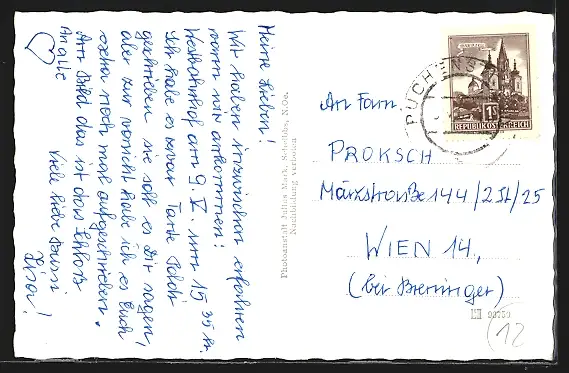 Meine Lieben!
Wir haben inzwischen erfahren
wann wir ankommen!
Westbahnhof am 9. V. um 15 35 h.
Ich habe es zwar Tante Poldi
geschrieben sie soll es Dir sagen,
aber zur Vorsicht habe ich es Euch
extra noch mal aufgeschrieben.
Am Bild das ist das Schloß
Viele liebe Bussi
An alle
Photoanstalt Julius Mark, Scheibbs, N.Oe.
Nachbildung verboten
PUCHENST
REPUBLIK ÖSTERREICH
1S
An Fam.
PROKSCH
Märzstraße 144/2St/25
WIEN 14,
(bei Breninger)
(12